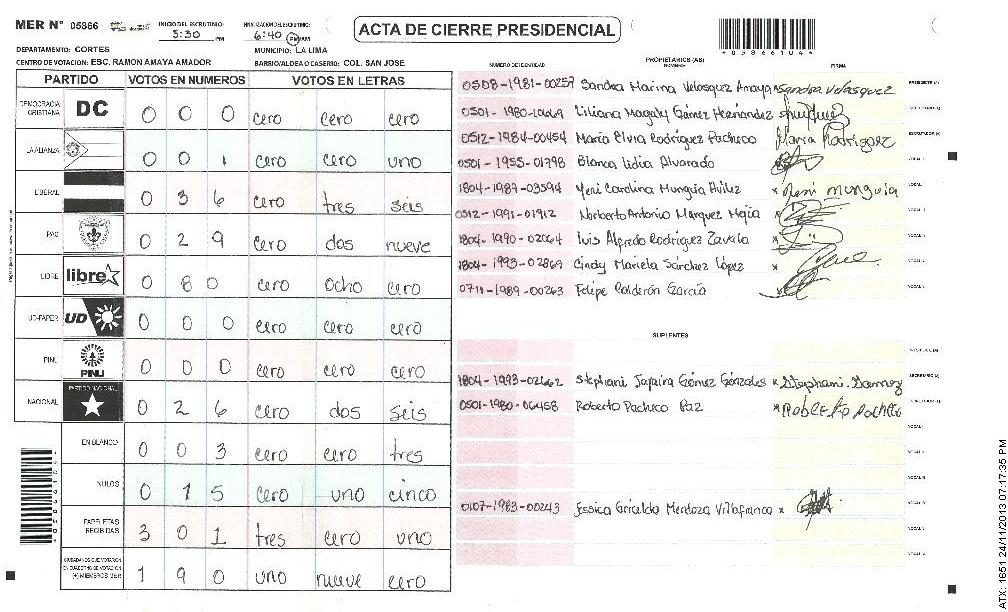 MER N° 05866
INICIO DEL ESCRUTINIO: 5:30 PM
FINALIZACION DEL ESCRUTINIO: 6:40 PM AM
ACTA DE CIERRE PRESIDENCIAL
*058661044*
DEPARTAMENTO: CORTES
MUNICIPIO: LA LIMA
CENTRO DE VOTACION: ESC. RAMON AMAYA AMADOR
BARRIO/ALDEA O CASERIO: COL. SAN JOSE
PARTIDO VOTOS EN NUMEROS VOTOS EN LETRAS
DEMOCRACIA CRISTIANA DC 0 0 0 cero cero cero
LA ALIANZA 0 0 1 cero cero uno
LIBERAL 0 3 6 cero tres seis
PAC 0 2 9 cero dos nueve
LIBRE libre 0 8 0 cero ocho cero
UD-FAPER UD 0 0 0 cero cero cero
PINU PINU 0 0 0 cero cero cero
NACIONAL PARTIDO NACIONAL 0 2 6 cero dos seis
EN BLANCO 0 0 3 cero cero tres
NULOS 0 1 5 cero uno cinco
PAPELETAS RECIBIDAS 3 0 1 tres cero uno
CIUDADANOS QUE VOTARON EN CUADERNO DE VOTACION (+) MIEMBROS MER 1 9 0 uno nueve cero
NUMERO DE IDENTIDAD PROPIETARIOS (AS) NOMBRES FIRMA
0508-1981-00257 Sandra Marina Velasquez Amaya Sandra Velasquez PRESIDENTE (A)
0501-1980-10669 Liliana Magaly Gámez Hernández SECRETARIO (A)
0512-1984-00454 Maria Elvia Rodríguez Pacheco Maria Rodriguez ESCRUTADOR (A)
0501-1955-01798 Blanca Lidia Alvarado VOCAL I
1804-1989-03594 Yeni Carolina Munguia Avilez x Yeni munguia VOCAL
0512-1991-01912 Norberto Antonio Marquez Mejia x VOCAL
1804-1990-02064 Luis Alfredo Rodríguez Zavala x VOCAL
1804-1993-02869 Cindy Mariela Sánchez López x VOCAL
0711-1989-00263 Felipe Calderón García VOCAL
SUPLENTES
1804-1993-02662 Stephani Jafaira Gómez Gónzales x Stephani Gamez SECRETARIO (A)
0501-1980-06458 Roberto Pacheco Paz x Roberto Pacheco
VOCAL I
0107-1983-00243 Jessica Griselda Mendoza Villafranca x
ATX: 1651 24/11/2013 07:17:35 PM